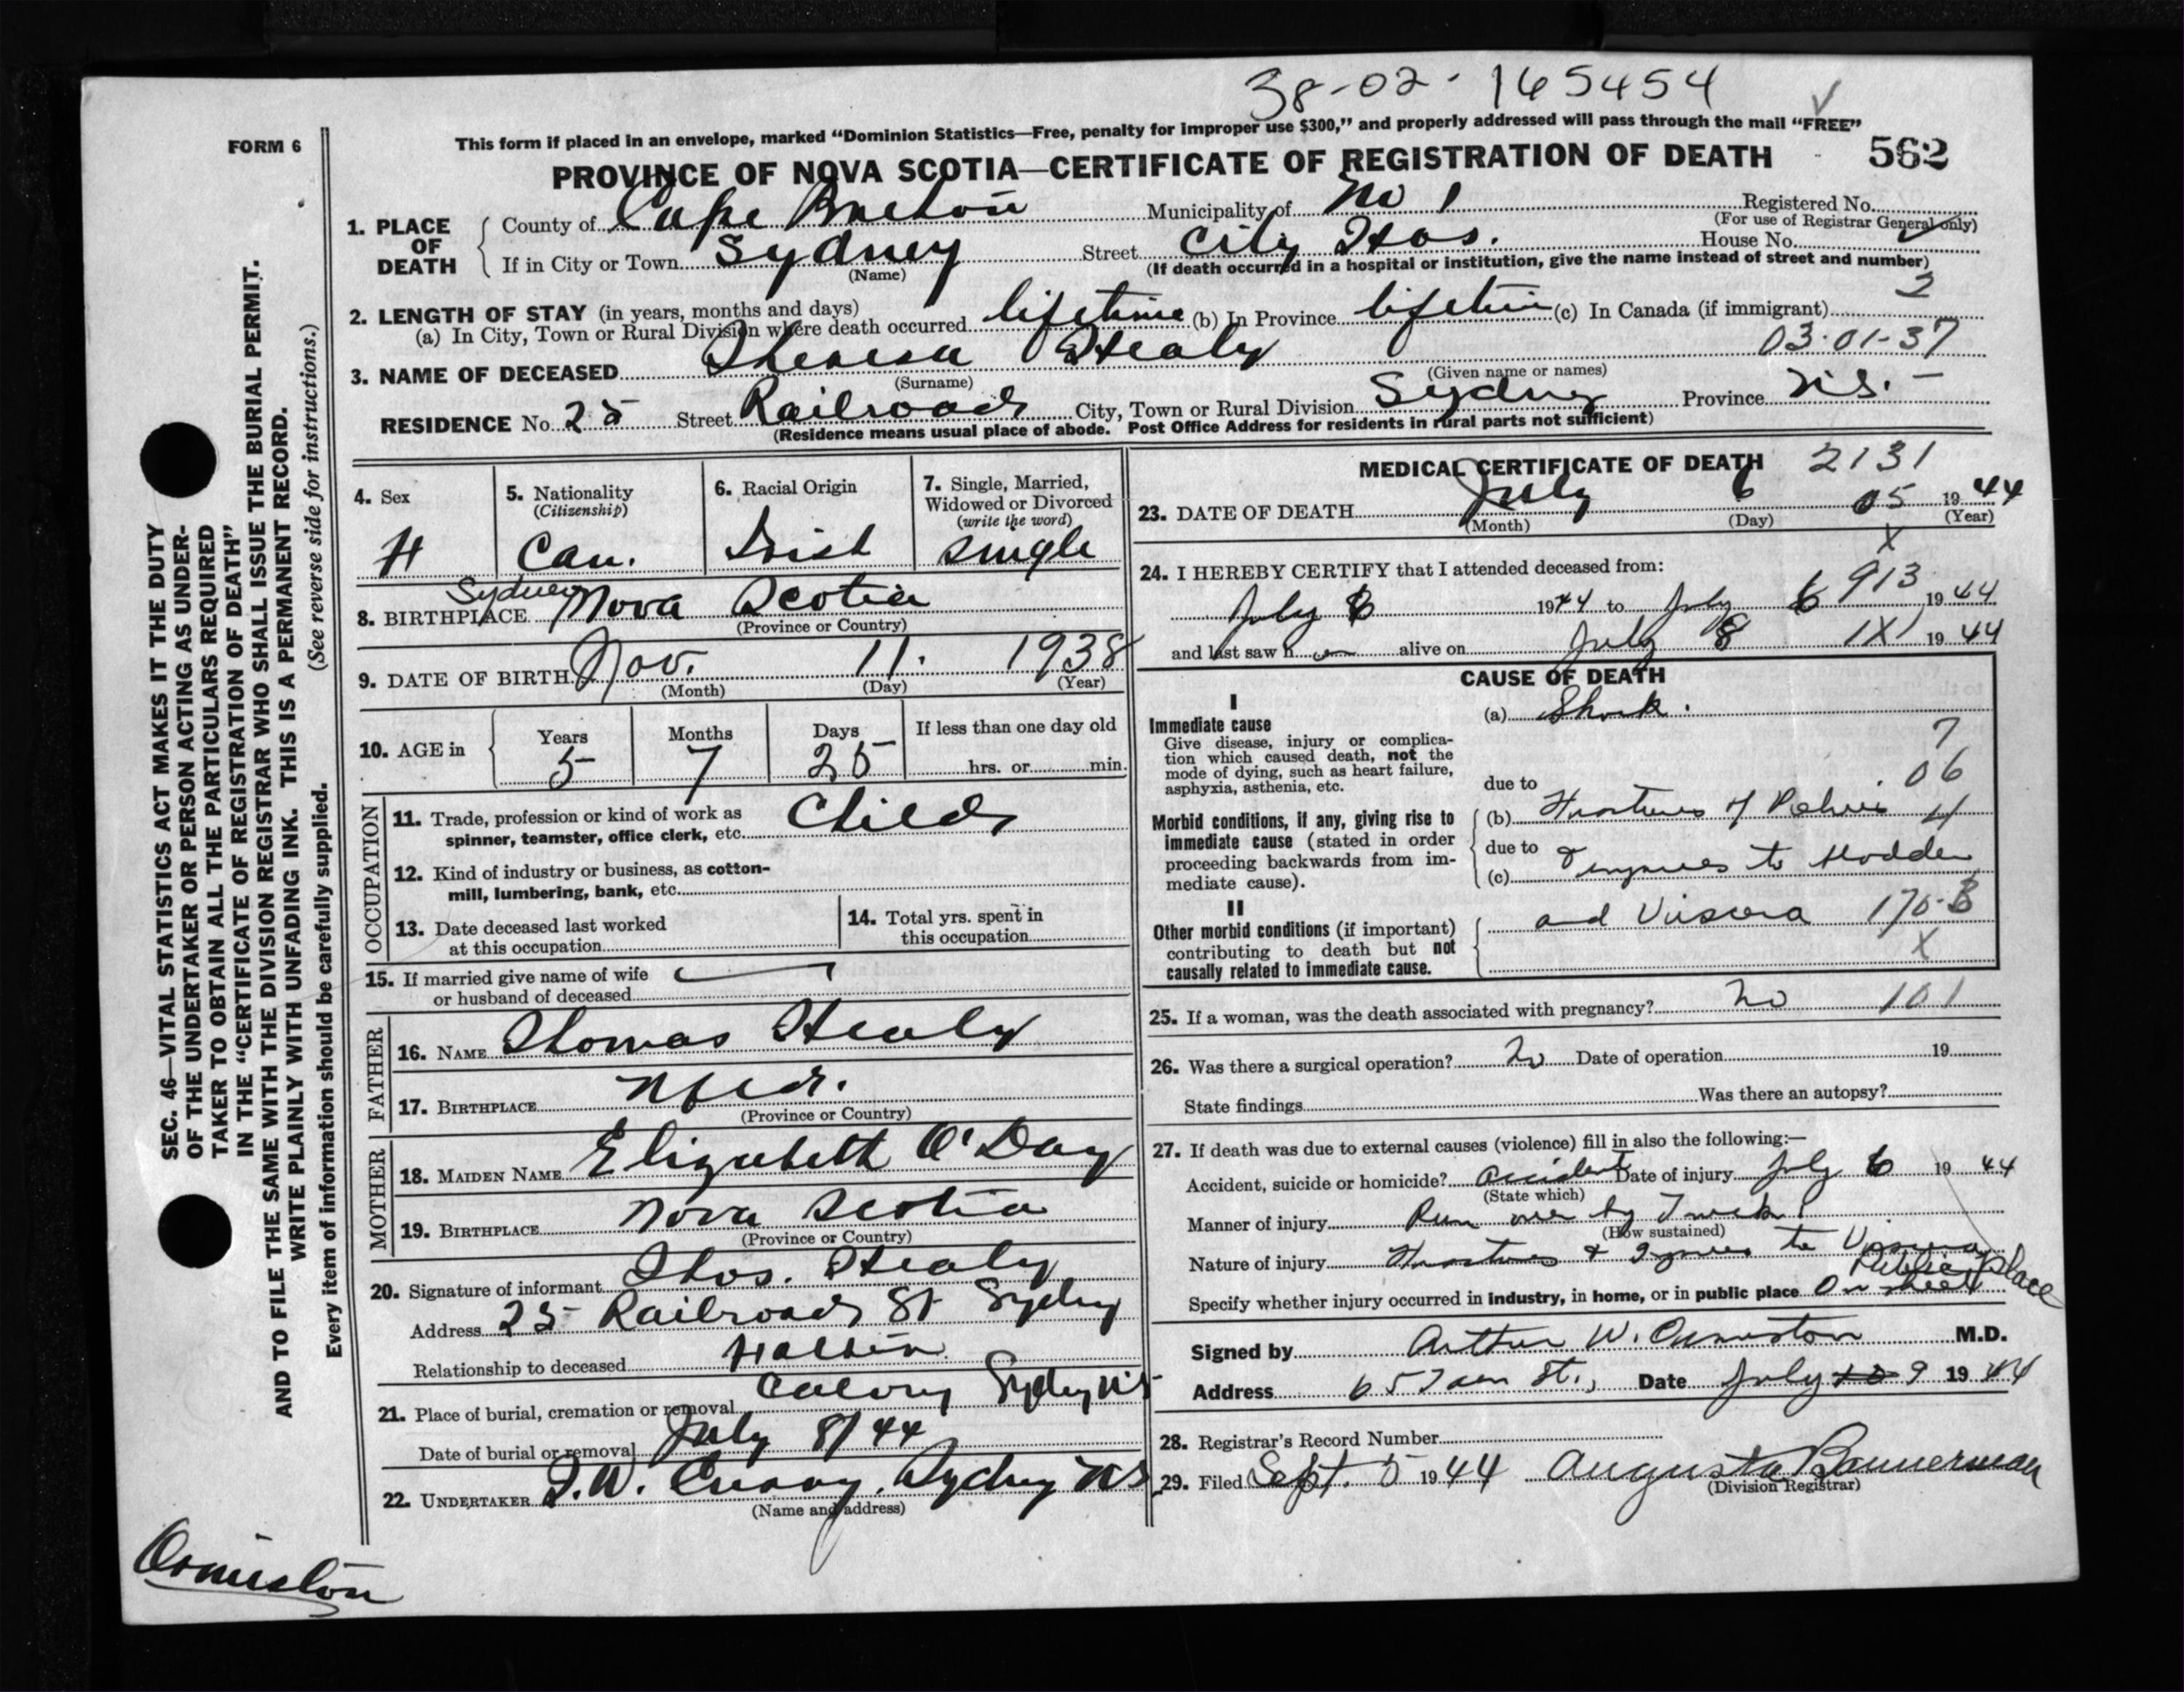 38-02-165454
This form if placed in an envelope, marked "Dominion Statistics—Free, penalty for improper use $300," and properly addressed will pass through the mail "FREE"
FORM 6
PROVINCE OF NOVA SCOTIA—CERTIFICATE OF REGISTRATION OF DEATH
562
SEC. 46—VITAL STATISTICS ACT MAKES IT THE DUTY
OF THE UNDERTAKER OR PERSON ACTING AS UNDER-
TAKER TO OBTAIN ALL THE PARTICULARS REQUIRED
IN THE "CERTIFICATE OF REGISTRATION OF DEATH"
AND TO FILE THE SAME WITH THE DIVISION REGISTRAR WHO SHALL ISSUE THE BURIAL PERMIT.
WRITE PLAINLY WITH UNFADING INK. THIS IS A PERMANENT RECORD.
Every item of information should be carefully supplied. (See reverse side for instructions.)
1. PLACE OF DEATH
County of Cape Breton Municipality of No 1 Registered No.
(For use of Registrar General only)
If in City or Town Sydney Street City Hos. House No.
(Name) (If death occurred in a hospital or institution, give the name instead of street and number)
2. LENGTH OF STAY (in years, months and days) 2
(a) In City, Town or Rural Division where death occurred lifetime (b) In Province lifetim (c) In Canada (if immigrant)
03-01-37
3. NAME OF DECEASED Theresa Healy
(Surname) (Given name or names)
RESIDENCE No. 25 Street Railroad City, Town or Rural Division Sydney Province N.S. –
(Residence means usual place of abode. Post Office Address for residents in rural parts not sufficient)
4. Sex
5. Nationality (Citizenship) Can.
6. Racial Origin Irish
7. Single, Married, Widowed or Divorced (write the word) Single
8. BIRTHPLACE Sydney Nova Scotia
(Province or Country)
9. DATE OF BIRTH Nov. 11. 1938
(Month) (Day) (Year)
10. AGE in Years 5 Months 7 Days 25 If less than one day old hrs. or min.
OCCUPATION
11. Trade, profession or kind of work as spinner, teamster, office clerk, etc. Child
12. Kind of industry or business, as cotton-mill, lumbering, bank, etc.
13. Date deceased last worked at this occupation
14. Total yrs. spent in this occupation
15. If married give name of wife or husband of deceased
FATHER
16. NAME Thomas Healy
17. BIRTHPLACE Nfld.
(Province or Country)
MOTHER
18. MAIDEN NAME Elizabeth O'Day
19. BIRTHPLACE Nova Scotia
(Province or Country)
20. Signature of informant Thos. Healy
Address 25 Railroad St Sydney
Relationship to deceased
21. Place of burial, cremation or removal Calvary Sydney NS
Date of burial or removal July 8/44
22. UNDERTAKER Sydney NS
(Name and address)
Ormiston
MEDICAL CERTIFICATE OF DEATH 2131
23. DATE OF DEATH July 6 05 1944
(Month) (Day) (Year)
X
24. I HEREBY CERTIFY that I attended deceased from:
July 6 1944 to July 6 913 1944
and last saw h er alive on July 8 1X1 1944
CAUSE OF DEATH
I
Immediate cause
Give disease, injury or complica-
tion which caused death, not the
mode of dying, such as heart failure,
asphyxia, asthenia, etc.
(a) Shock.
7
due to 06
Morbid conditions, if any, giving rise to
immediate cause (stated in order
proceeding backwards from im-
mediate cause).
(b) Fractures of Pelvis 4
due to
(c) & Injuries to Bladder
II
Other morbid conditions (if important)
contributing to death but not
causally related to immediate cause.
and Viscera 170-B
X
25. If a woman, was the death associated with pregnancy? No 101
26. Was there a surgical operation? No Date of operation 19
State findings Was there an autopsy?
27. If death was due to external causes (violence) fill in also the following:—
Accident, suicide or homicide? accident Date of injury July 6 1944
(State which)
Manner of injury Run over by Truck
(How sustained)
Nature of injury Fractures & Injuries to Viscera
Public place
Specify whether injury occurred in industry, in home, or in public place On street
Signed by Arthur W. Ormiston M.D.
Address 65 St., Date July 9 1944
28. Registrar's Record Number
29. Filed Sept. 5 1944 Augusta Bannerman
(Division Registrar)